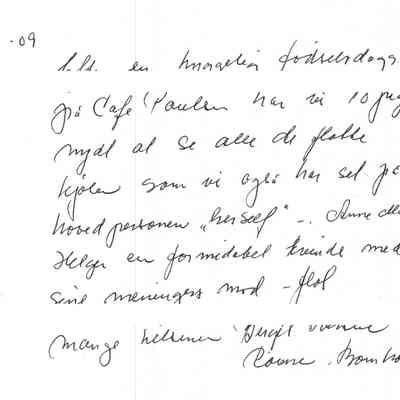 -09
en fødselsdags
på Café har vi 10
nydt at se alle de flotte
kjoler som vi også har set på
hovedpersonen „herself" -. Anne
Helge en formidabel kvinde med
sine meningers mod - flot
mange hilsener Birgit
Rønne . Bornho